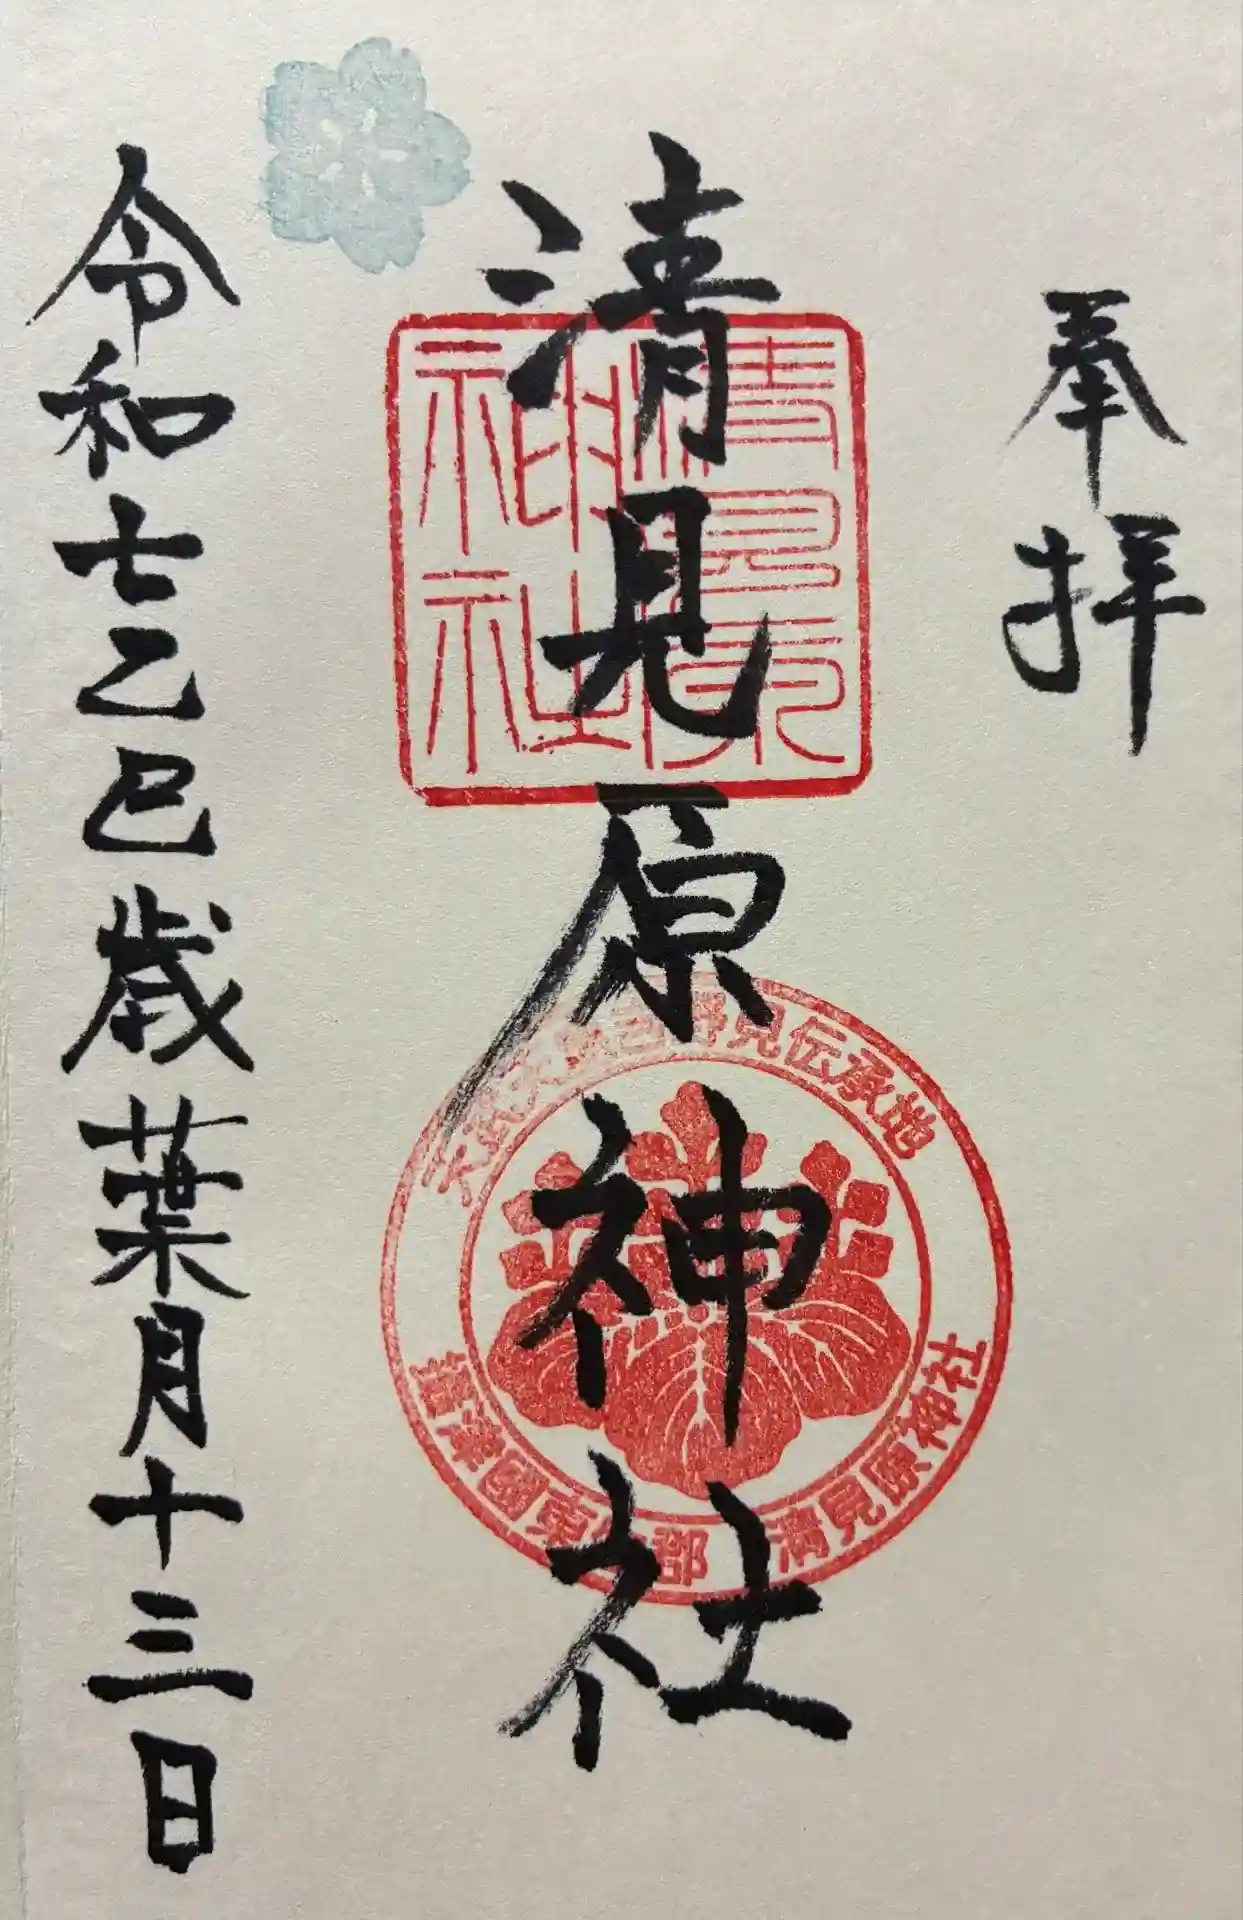 奉拝
清見原神社
清見原
神社
天武天皇国見伝承地
摂津國東生郡 清見原神社
令和七乙巳歳葉月十三日